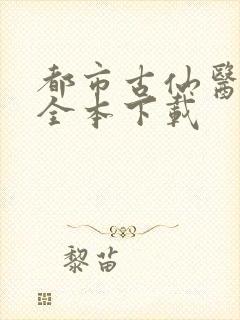 都市古仙醫
全本下載
黎苗